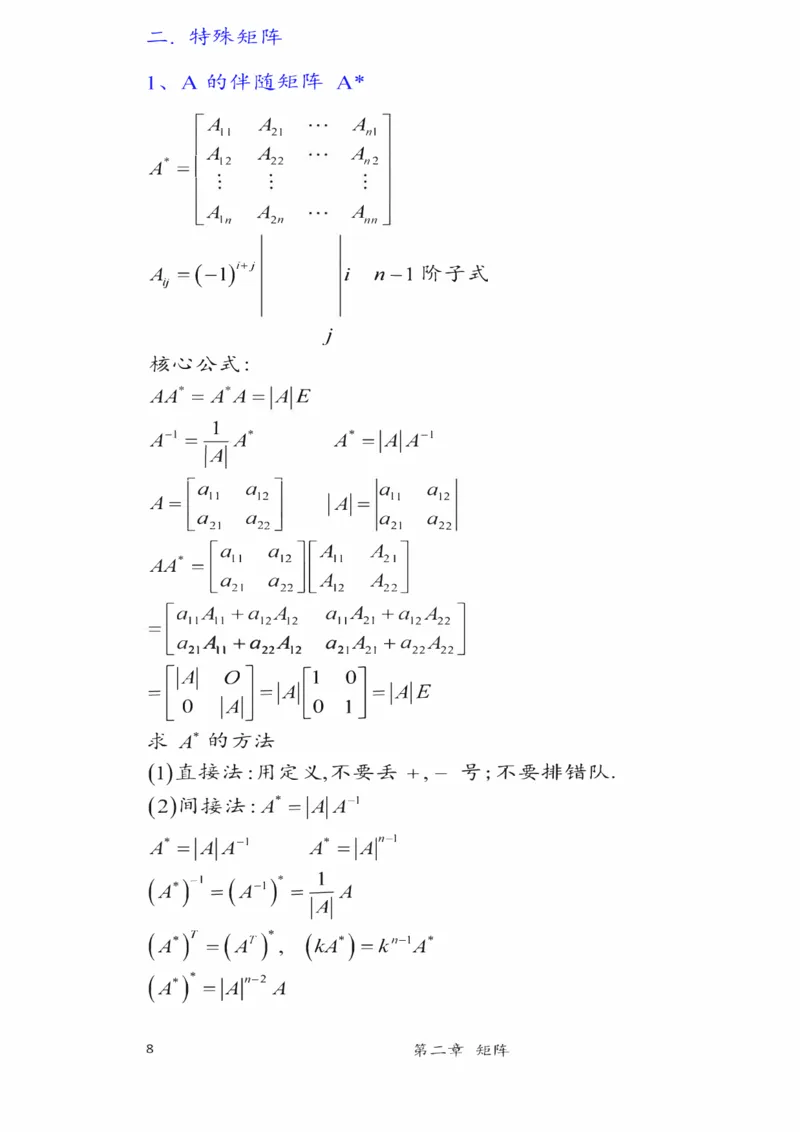 二. 特殊矩阵
1、A 的伴随矩阵 A*
A* = [ A₁₁ A₂₁ ⋯ Aₙ₁
A₁₂ A₂₂ ⋯ Aₙ₂
⋮ ⋮ ⋮
A₁ₙ A₂ₙ ⋯ Aₙₙ ]
A_ij = (−1)^(i+j) | | i n−1 阶子式
j
核心公式:
AA* = A*A = |A|E
A⁻¹ = 1/|A| A* A* = |A|A⁻¹
A = [ a₁₁ a₁₂ ; a₂₁ a₂₂ ] |A| = | a₁₁ a₁₂ ; a₂₁ a₂₂ |
AA* = [ a₁₁ a₁₂ ; a₂₁ a₂₂ ][ A₁₁ A₂₁ ; A₁₂ A₂₂ ]
= [ a₁₁A₁₁ + a₁₂A₁₂ a₁₁A₂₁ + a₁₂A₂₂ ; a₂₁A₁₁ + a₂₂A₁₂ a₂₁A₂₁ + a₂₂A₂₂ ]
= [ |A| O ; 0 |A| ] = |A| [ 1 0 ; 0 1 ] = |A|E
求 A* 的方法
(1)直接法:用定义,不要丢 +,− 号;不要排错队.
(2)间接法:A* = |A|A⁻¹
A* = |A|A⁻¹ A* = |A|ⁿ⁻¹
(A*)⁻¹ = (A⁻¹)* = 1/|A| A
(A*)ᵀ = (Aᵀ)*, (kA*) = kⁿ⁻¹A*
(A*)* = |A|ⁿ⁻² A
8 第二章 矩阵